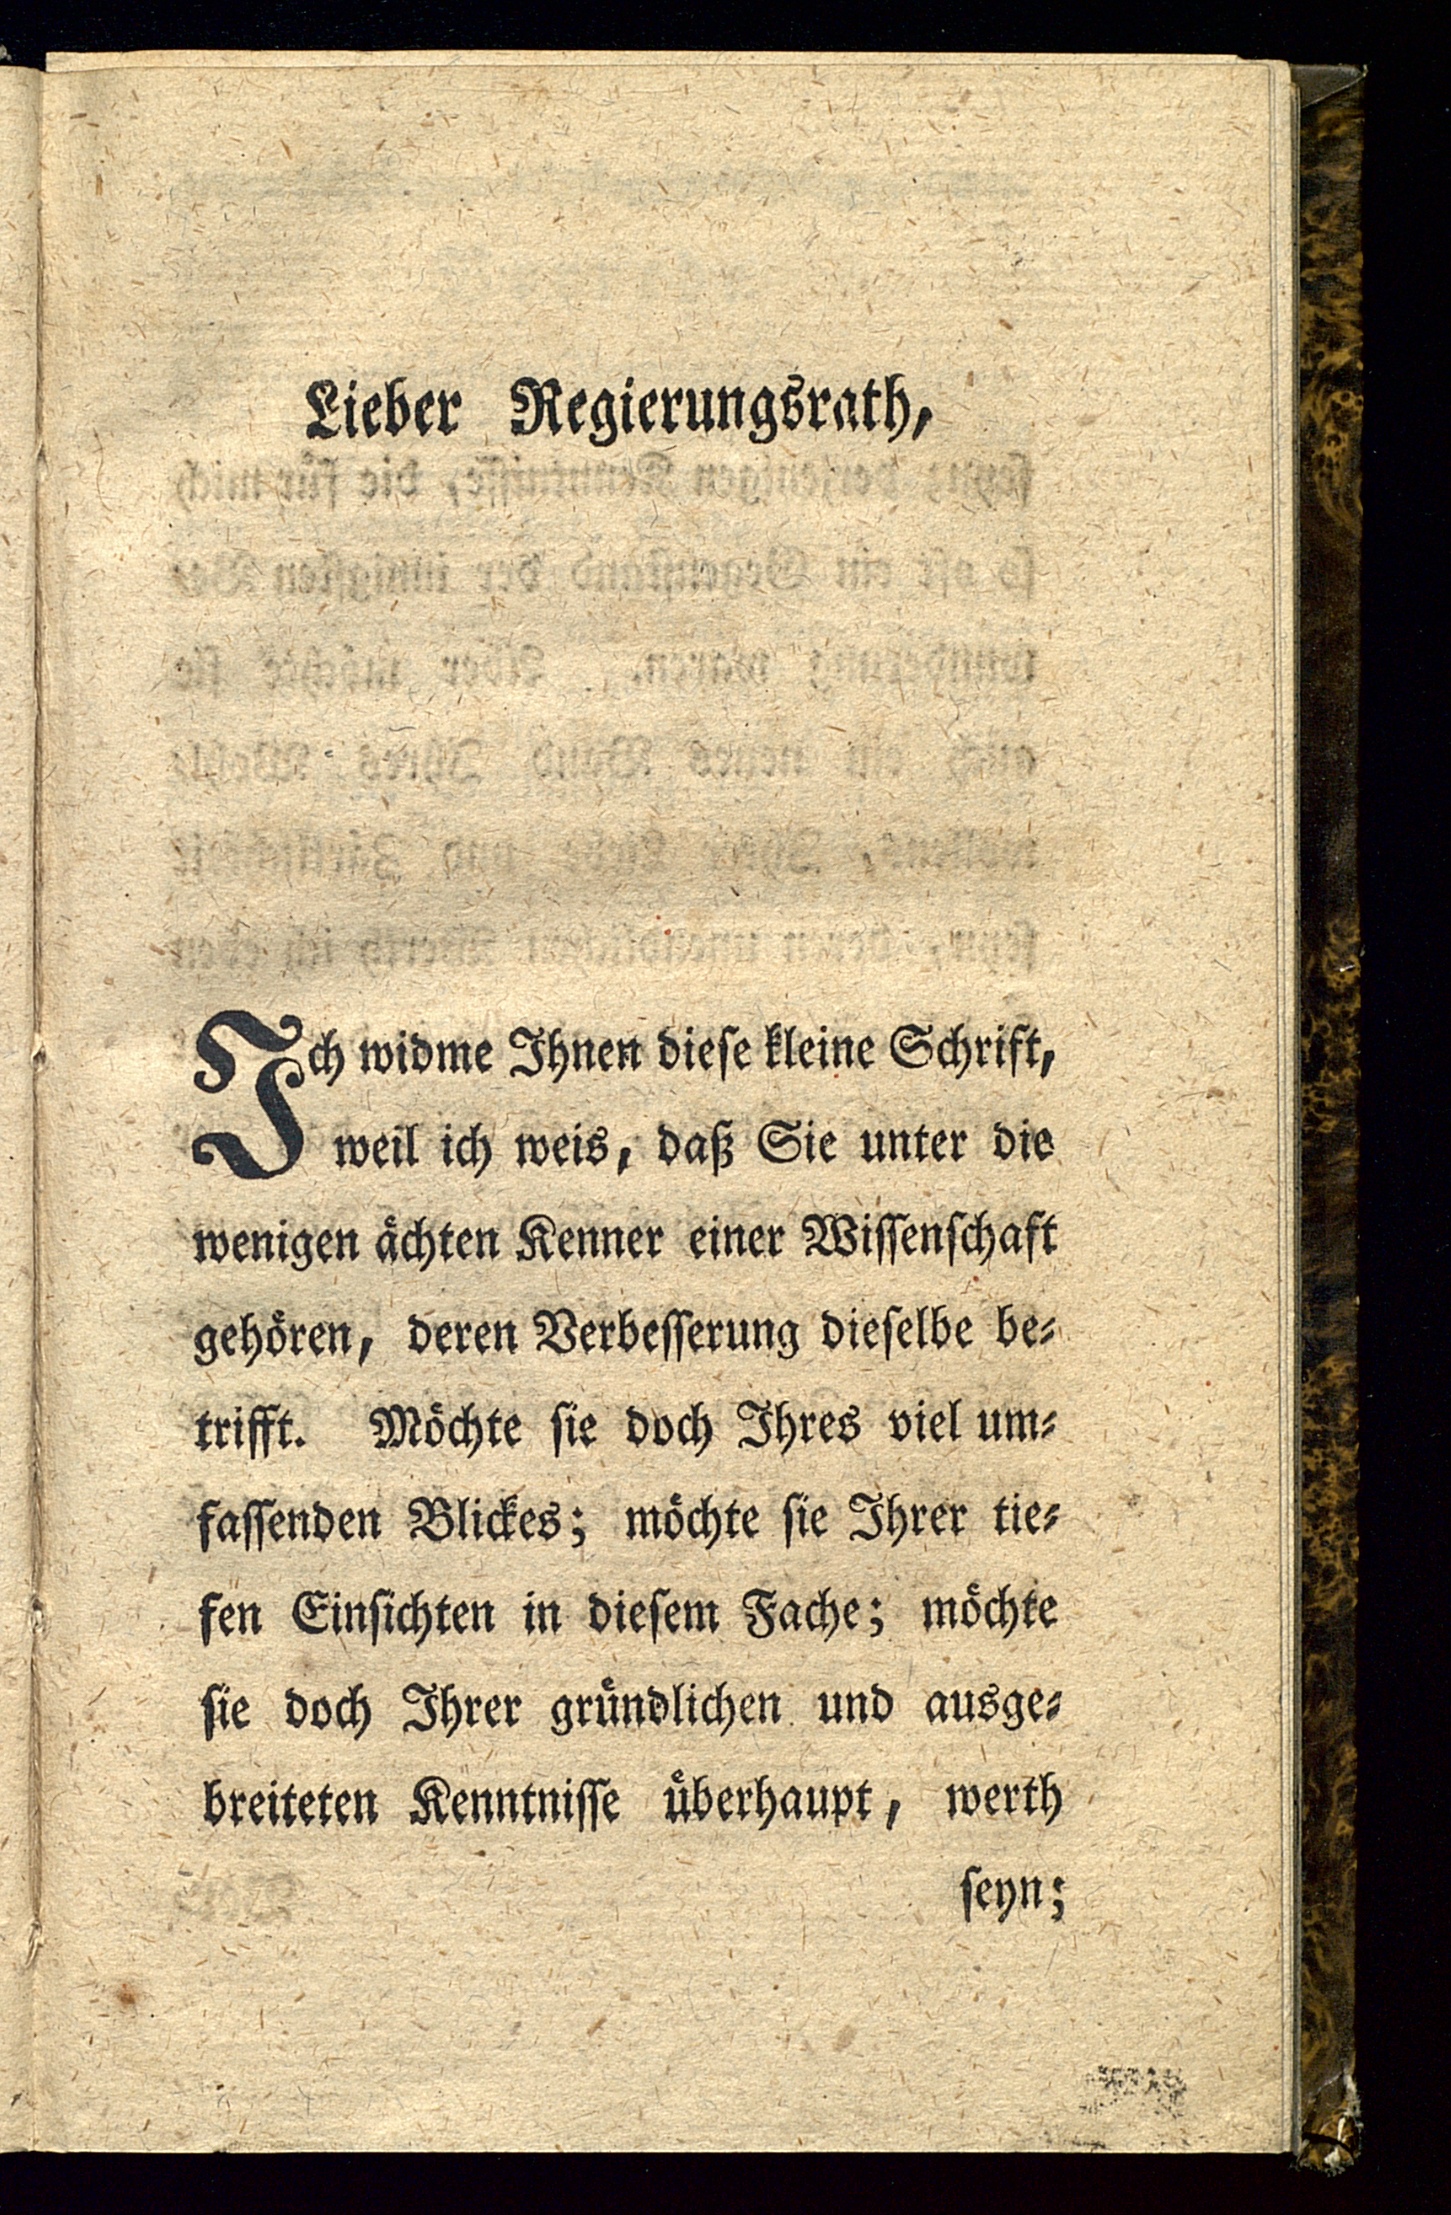 Lieber Regierungsrath,
Ich widme Ihnen dieſe kleine Schrift,
weil ich weis, daß Sie unter die
wenigen aͤchten Kenner einer Wiſſenſchaft
gehoͤren, deren Verbeſſerung dieſelbe be⸗
trifft. Moͤchte ſie doch Ihres viel um⸗
faſſenden Blickes; moͤchte ſie Ihrer tie⸗
fen Einſichten in dieſem Fache; moͤchte
ſie doch Ihrer gruͤndlichen und ausge⸗
breiteten Kenntniſſe uͤberhaupt, werth
ſeyn;